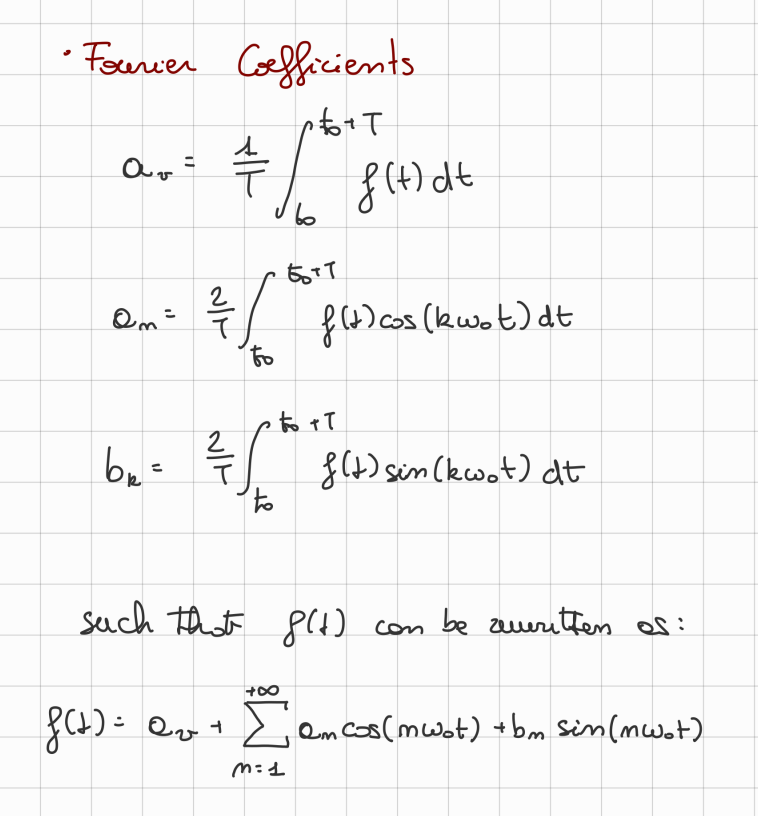 · Fourier Coefficients
a_v = 1/T ∫_{t₀}^{t₀+T} f(t) dt
a_n = 2/T ∫_{t₀}^{t₀+T} f(t) cos(kω₀t) dt
b_k = 2/T ∫_{t₀}^{t₀+T} f(t) sin(kω₀t) dt
such that f(t) can be rewritten as:
f(t) = a_v + ∑_{n=1}^{+∞} a_n cos(nω₀t) + b_n sin(nω₀t)